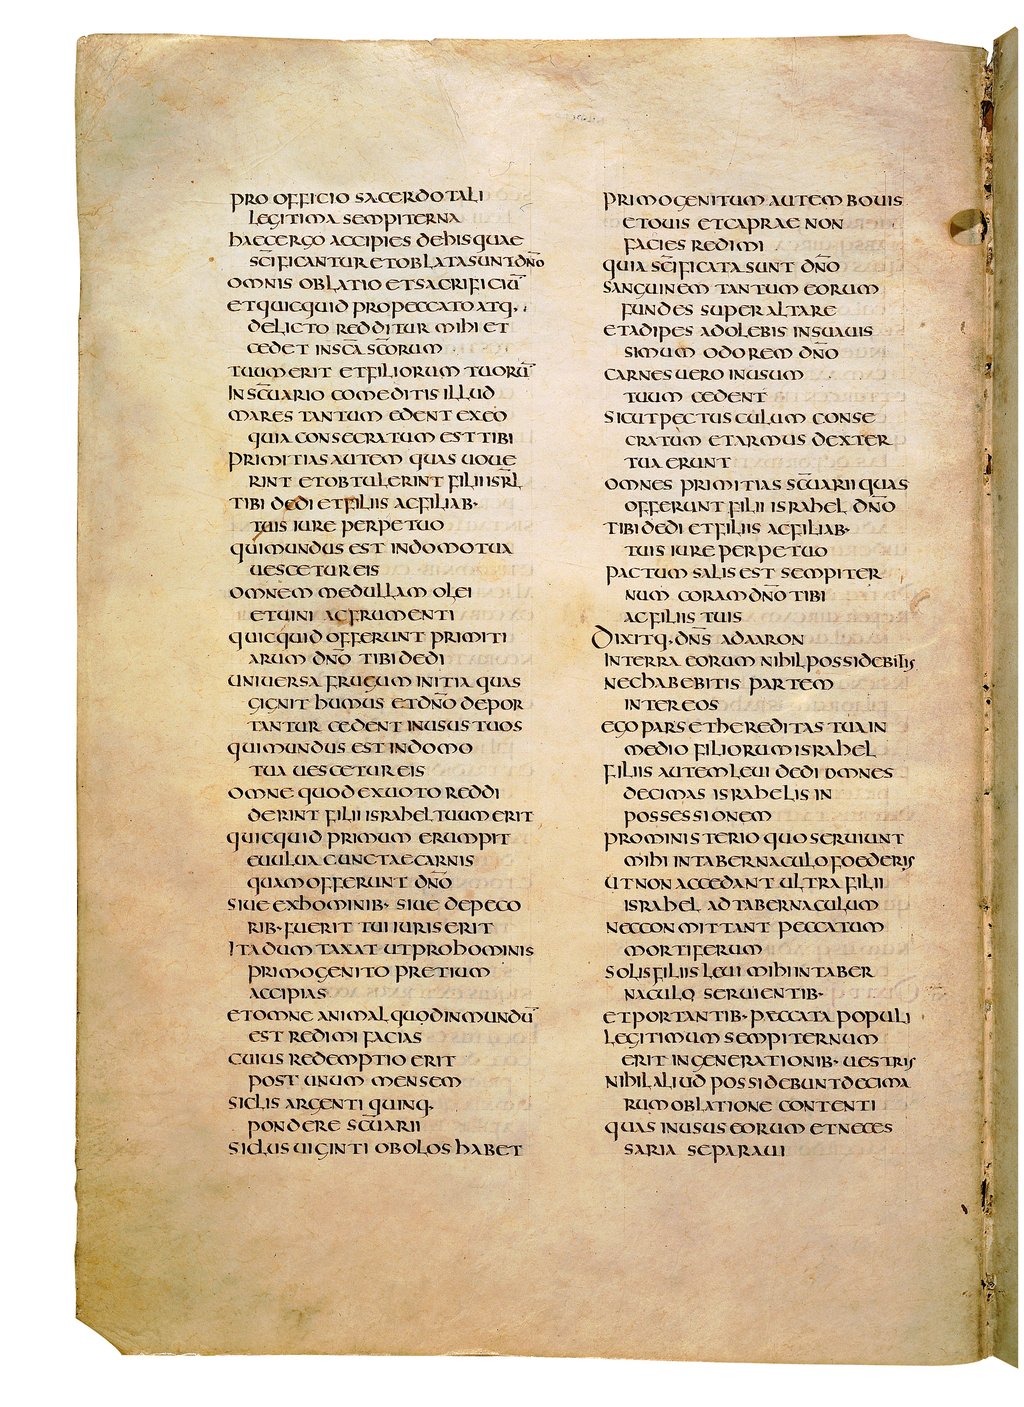 PRO OFFICIO SACERDOTALI
LEGITIMA SEMPITERNA
HAEC ERGO ACCIPIES DE HIS QUAE
SC̄IFICANTUR ET OBLATA SUNT DN̄O
OMNIS OBLATIO ET SACRIFICIŪ
ET QUICQUID PRO PECCATO ATQ·
DELICTO REDDITUR MIHI ET
CEDET IN SC̄A SC̄ORUM
TUUM ERIT ET FILIORUM TUORŪ
IN SC̄UARIO COMEDITIS ILLUD
MARES TANTUM EDENT EX EO
QUIA CONSECRATUM EST TIBI
PRIMITIAS AUTEM QUAS UOUE
RINT ET OBTULERINT FILII ISRL̄
TIBI DEDI ET FILIIS AC FILIAB·
TUIS IURE PERPETUO
QUI MUNDUS EST IN DOMO TUA
UESCETUR EIS
OMNEM MEDULLAM OLEI
ET UINI AC FRUMENTI
QUICQUID OFFERUNT PRIMITI
ARUM DN̄O TIBI DEDI
UNIUERSA FRUGUM INITIA QUAS
GIGNIT HUMUS ET DN̄O DEPOR
TANTUR CEDENT IN USUS TUOS
QUI MUNDUS EST IN DOMO
TUA UESCETUR EIS
OMNE QUOD EX UOTO REDDI
DERINT FILII ISRAHEL TUUM ERIT
QUICQUID PRIMUM ERUMPIT
E UULUA CUNCTAE CARNIS
QUAM OFFERUNT DN̄O
SIUE EX HOMINIB· SIUE DE PECO
RIB· FUERIT TUI IURIS ERIT
ITA DUM TAXAT UT PRO HOMINIS
PRIMOGENITO PRETIUM
ACCIPIAS
ET OMNE ANIMAL QUOD INMUNDŪ
EST REDIMI FACIAS
CUIUS REDEMPTIO ERIT
POST UNUM MENSEM
SICLIS ARGENTI QUINQ·
PONDERE SC̄UARII
SICLUS UIGINTI OBOLOS HABET
PRIMOGENITUM AUTEM BOUIS
ET OUIS ET CAPRAE NON
FACIES REDIMI
QUIA SC̄IFICATA SUNT DN̄O
SANGUINEM TANTUM EORUM
FUNDES SUPER ALTARE
ET ADIPES ADOLEBIS IN SUAUIS
SIMUM ODOREM DN̄O
CARNES UERO IN USUM
TUUM CEDENT
SICUT PECTUSCULUM CONSE
CRATUM ET ARMUS DEXTER
TUA ERUNT
OMNES PRIMITIAS SC̄UARII QUAS
OFFERUNT FILII ISRAHEL DN̄O
TIBI DEDI ET FILIIS AC FILIAB·
TUIS IURE PERPETUO
PACTUM SALIS EST SEMPITER
NUM CORAM DN̄O TIBI
AC FILIIS TUIS
DIXITQ· DN̄S AD AARON
IN TERRA EORUM NIHIL POSSIDEBITIS
NEC HABEBITIS PARTEM
INTER EOS
EGO PARS ET HEREDITAS TUA IN
MEDIO FILIORUM ISRAHEL
FILIIS AUTEM LEUI DEDI OMNES
DECIMAS ISRAHELIS IN
POSSESSIONEM
PRO MINISTERIO QUO SERUIUNT
MIHI IN TABERNACULO FOEDERIS
UT NON ACCEDANT ULTRA FILII
ISRAHEL AD TABERNACULUM
NEC CONMITTANT PECCATUM
MORTIFERUM
SOLIS FILIIS LEUI MIHI IN TABER
NACULO SERUIENTIB·
ET PORTANTIB· PECCATA POPULI
LEGITIMUM SEMPITERNUM
ERIT IN GENERATIONIB· UESTRIS
NIHIL ALIUD POSSIDEBUNT DECIMA
RUM OBLATIONE CONTENTI
QUAS IN USUS EORUM ET NECES
SARIA SEPARAUI